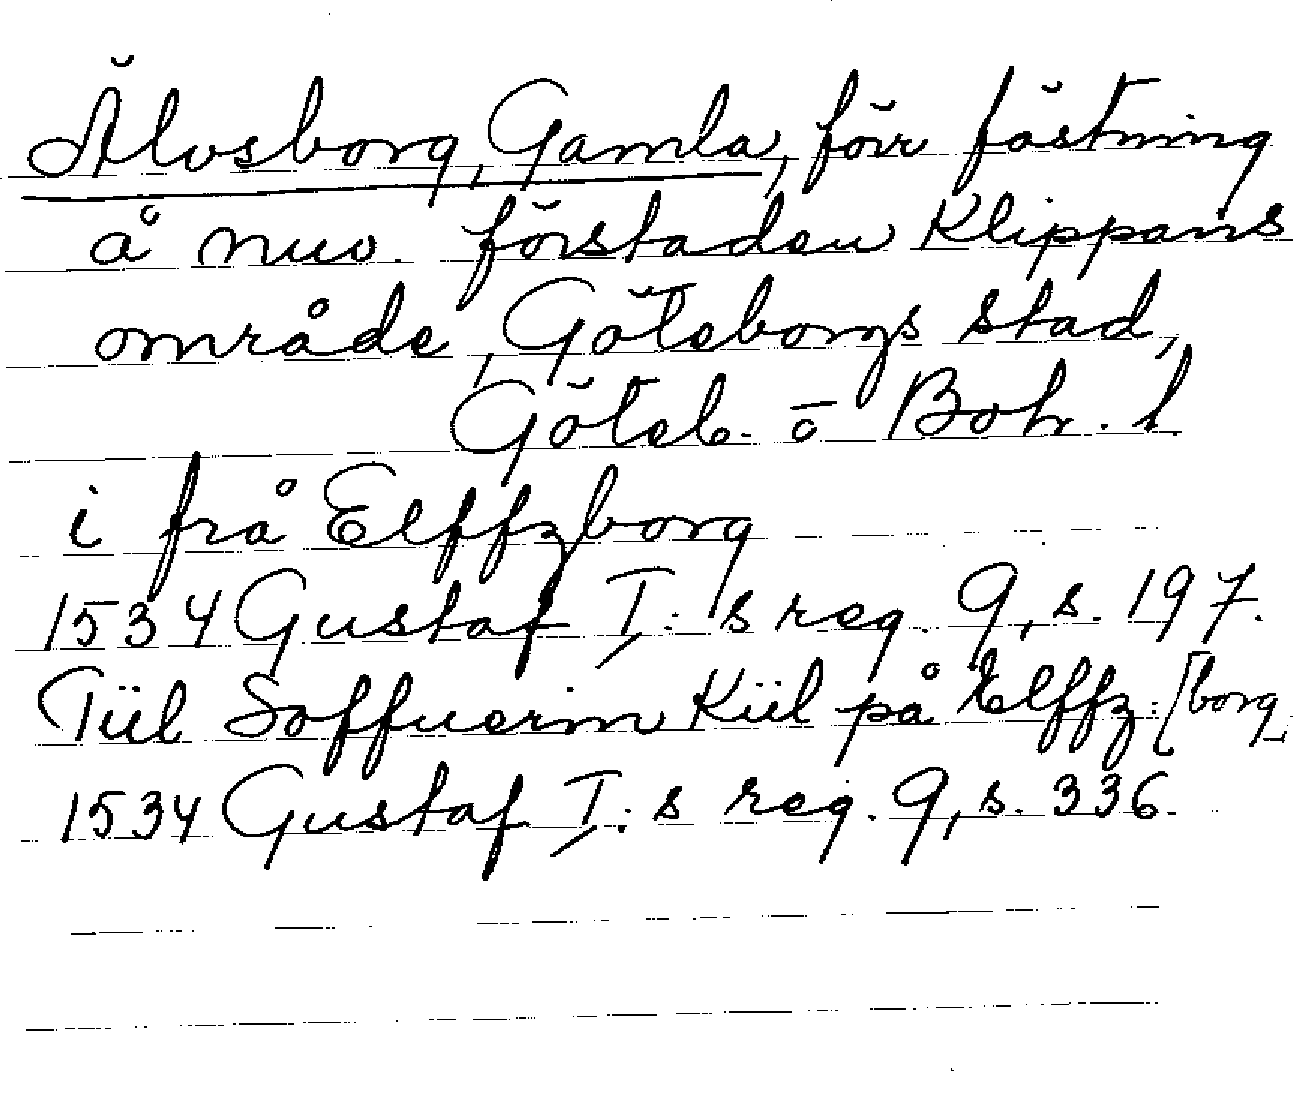 Älvsborg, Gamla, förr fästning
å nuv. förstaden Klippans
område, Göteborgs stad,
Göteb. o Boh. l.
i frå Elffzborg
1534 Gustaf I:s reg. 9, s. 197.
Tiil Soffuerin Kiil på Elffz:[borg
1534 Gustaf I:s reg. 9, s. 336.